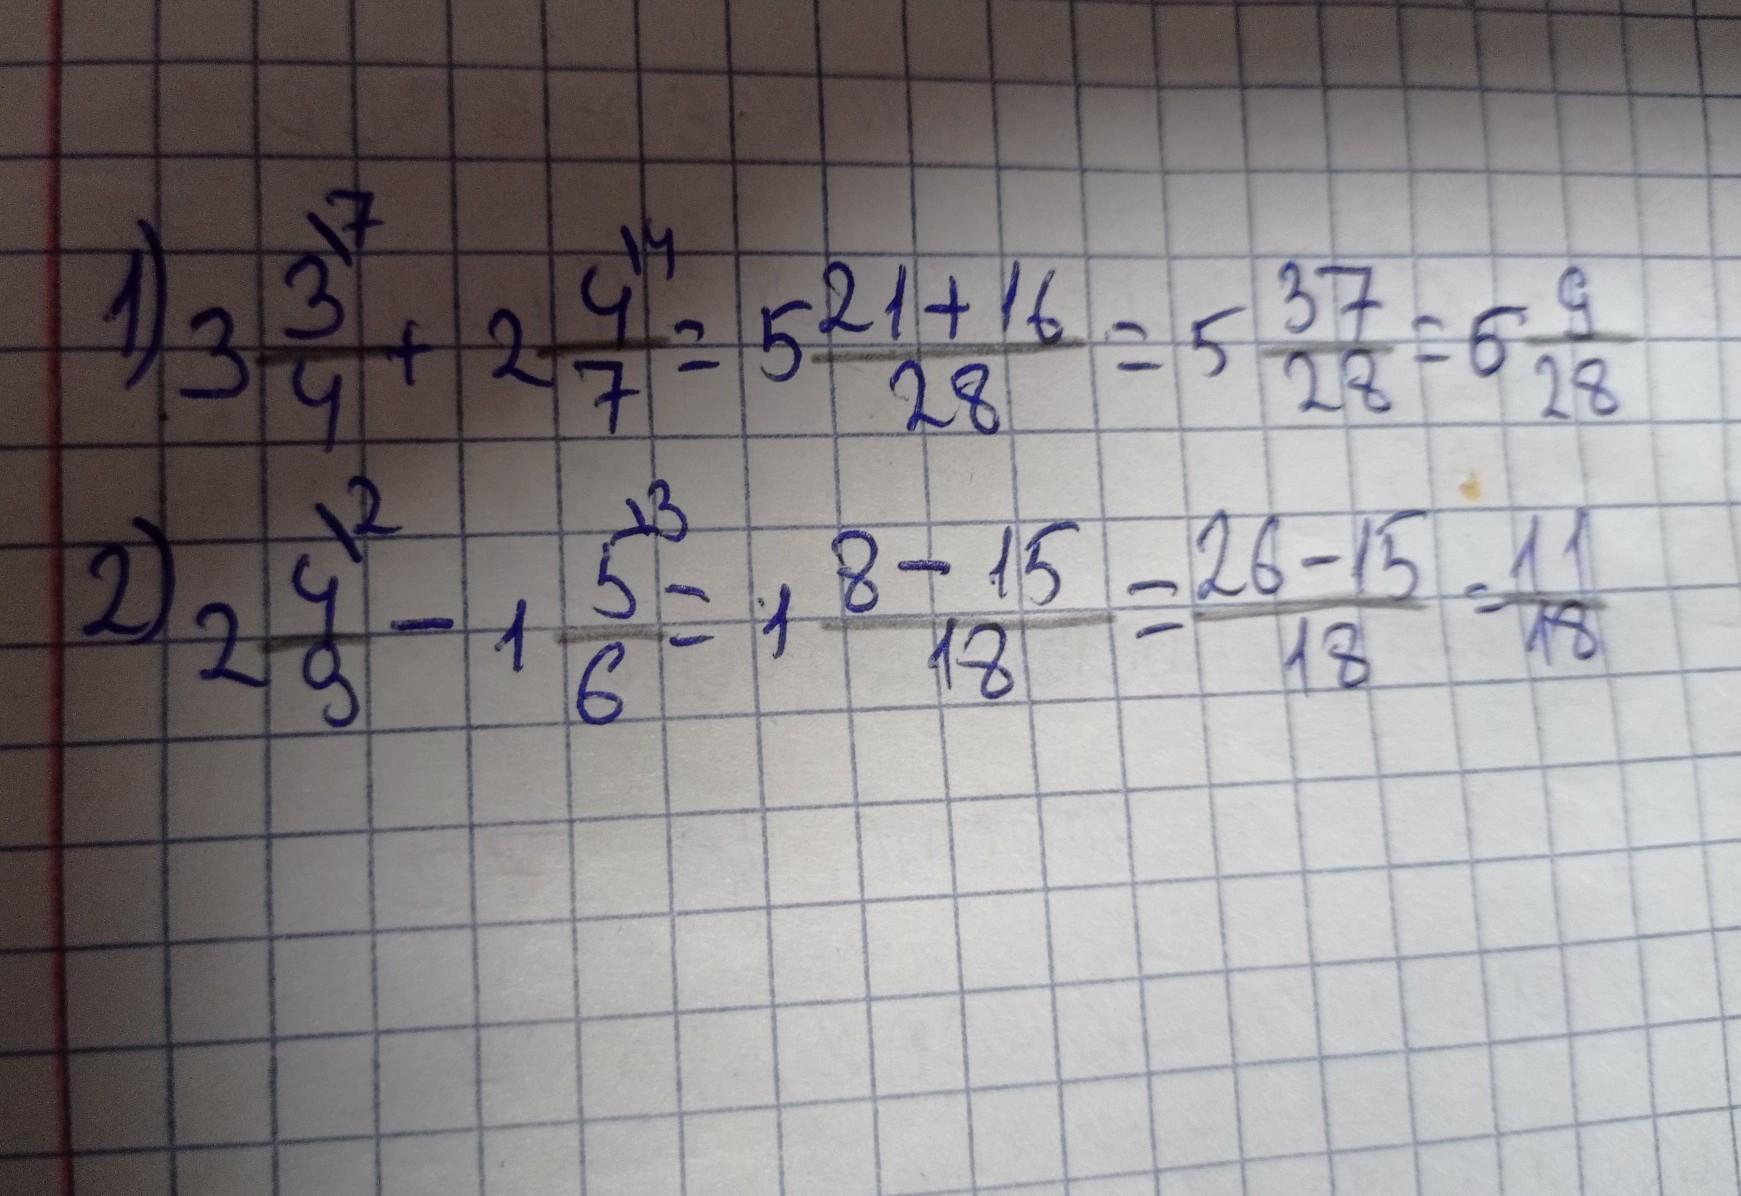 1) 3 3\7/4 + 2 4\4/7 = 5 21+16/28 = 5 37/28 = 6 9/28
2) 2 4\2/9 - 1 5\3/6 = 1 8-15/18 = 26-15/18 = 11/18